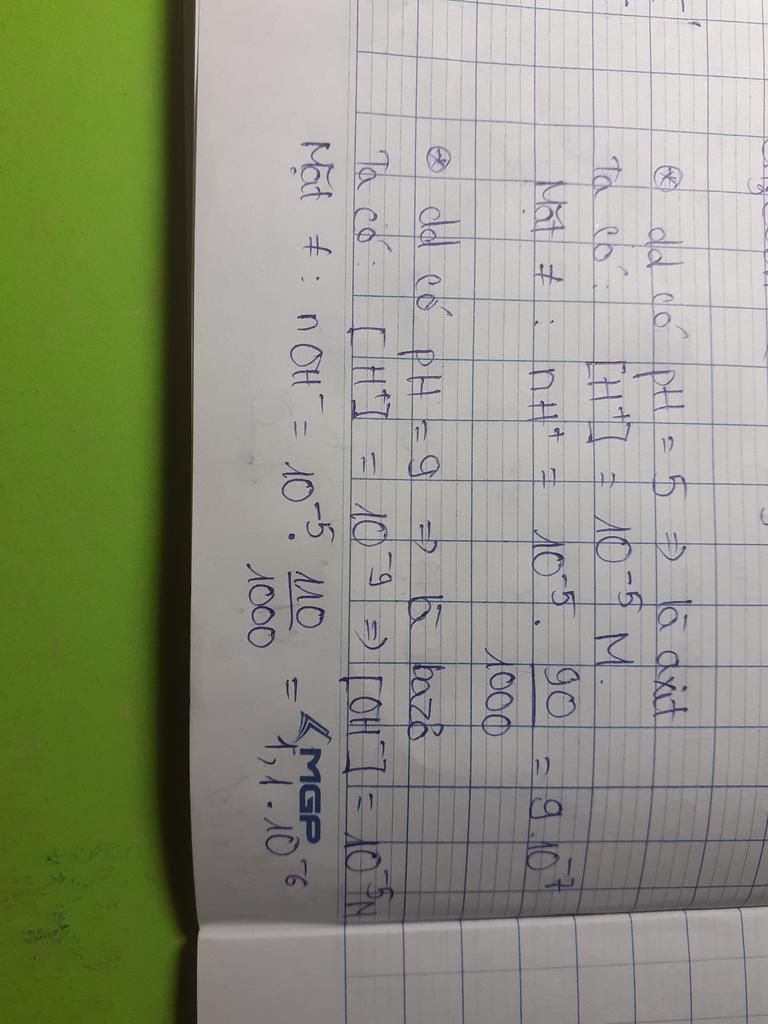 ⊛ dd có pH = 5 ⇒ là axit
Ta có: [H⁺] = 10⁻⁵ M.
Mặt ≠ : nH⁺ = 10⁻⁵ . 90/1000 = 9.10⁻⁷
⊛ dd có pH = 9 ⇒ là bazơ
Ta có: [H⁺] = 10⁻⁹ ⇒ [OH⁻] = 10⁻⁵M
Mặt ≠ : nOH⁻ = 10⁻⁵ . 110/1000 = 1,1.10⁻⁶
MGP